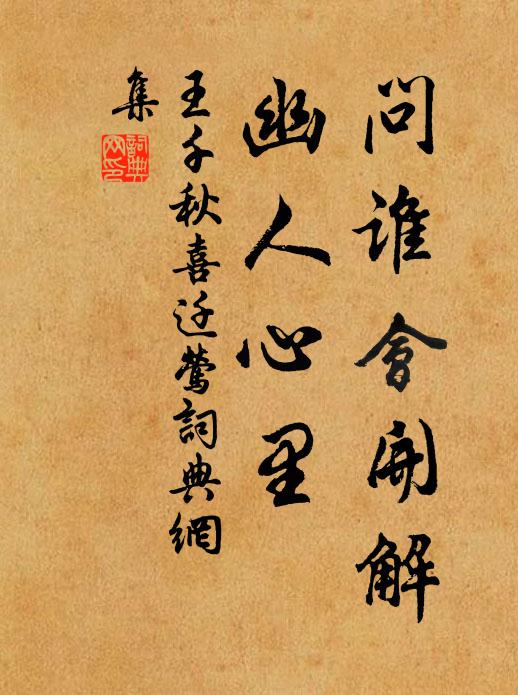 问谁會開解
幽人心里
王千秋喜迁莺詞典網
集
詞典网印